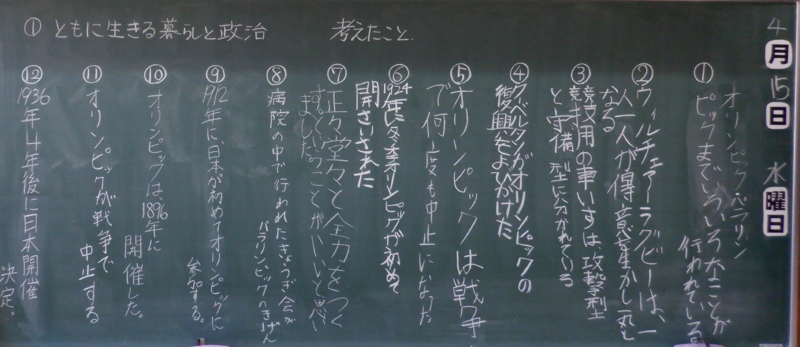 4月15日 水曜日
① ともに生きる暮らしと政治 考えたこと
① オリンピック・パラリン
ピックまでいろいろなことが
行われている
② ウィルチェアーラグビーは、一
人一人が得意を生かし一丸と
なる
③ 競技用の車いすは攻撃型
と守備型に分かれている
④ クーベルタンがオリンピックの
復興をよびかけた
⑤ オリンピックは戦争
で何度も中止になった
⑥ 1924年に冬季オリンピックが初めて
開さいされた
⑦ 正々堂々と全力をつく
すということがいいと思い
ました。
⑧ 病院の中で行われたきょうぎ会が
パラリンピックのきげん
⑨ 1912年に、日本が初めてオリンピックに
参加する。
⑩ オリンピックは1896年に
開催した。
⑪ オリンピックが戦争で
中止する
⑫ 1936年4年後に日本開催
決定。